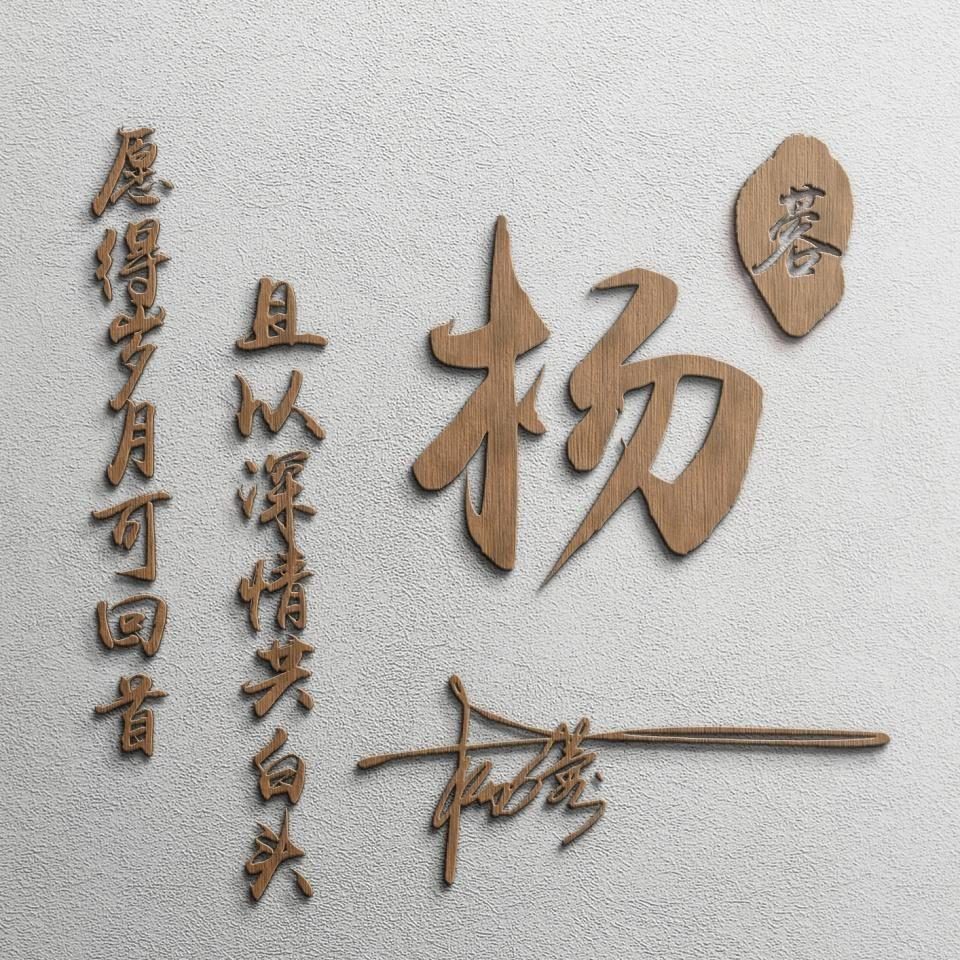 愿得岁月可回首
且以深情共白头
杨
蓉
杨蓉